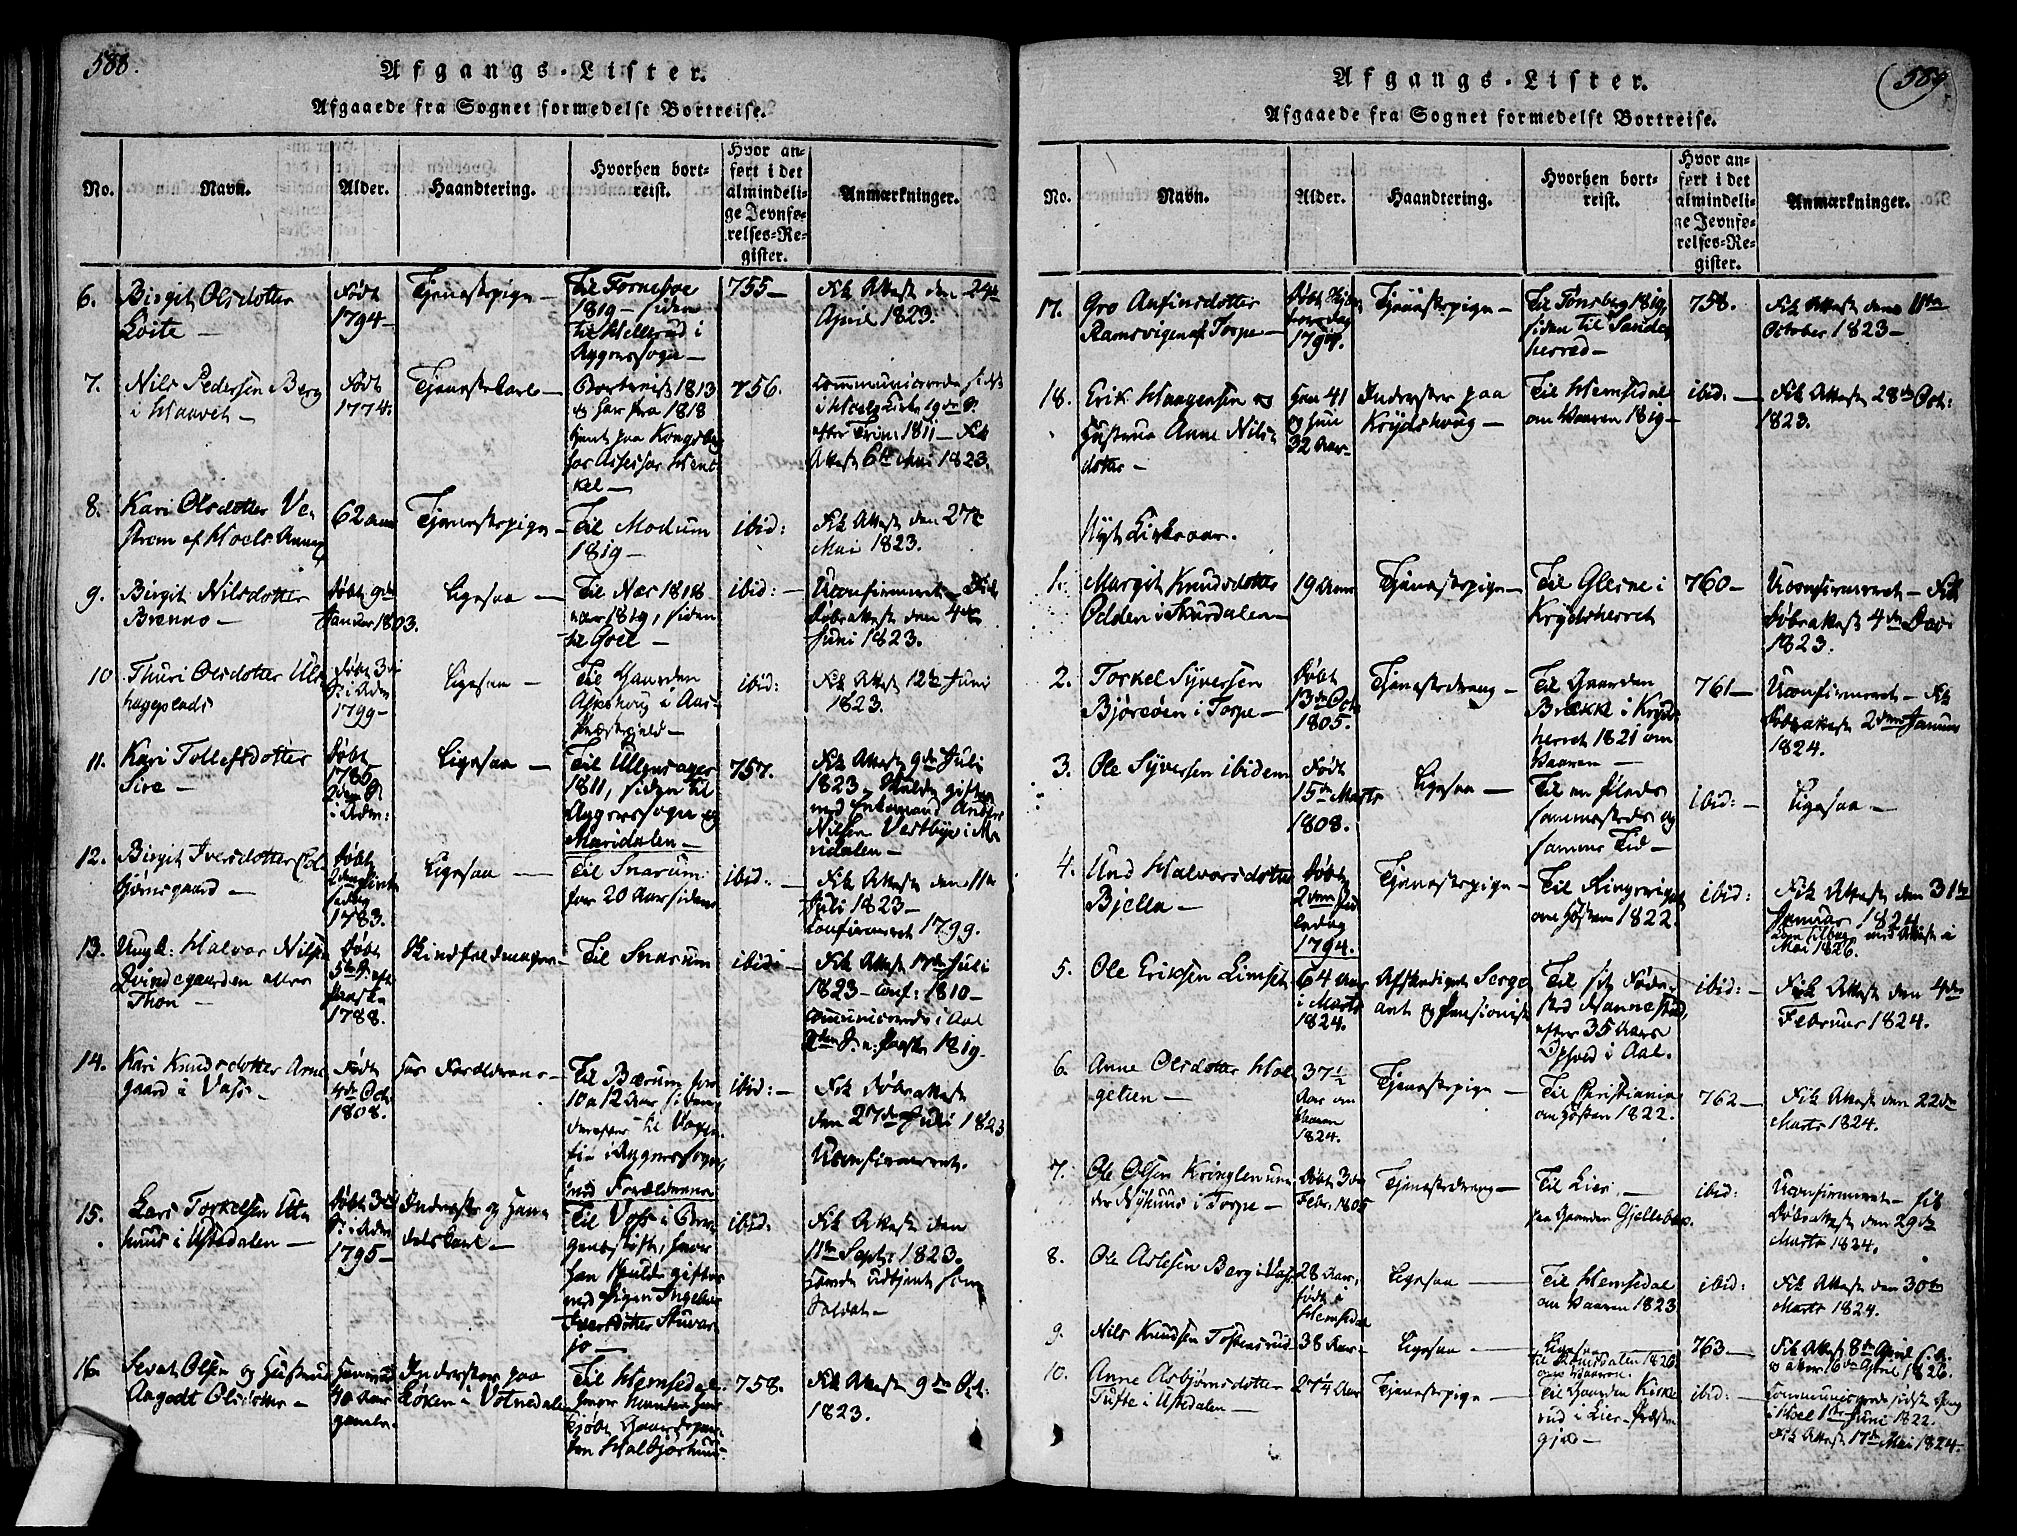 588.
Afgangs-Lister.
Afgaaede fra Sognet formedelst Bortreise.
No.
Navn.
Alder.
Haandtering.
Hvorhen bort-
reist.
Hvor an-
ført i det
almindeli-
ge Jevnfø-
relses-Re-
gister.
Anmærkninger.
6.
Birgit Olsdotter
Loite —
Født
1794 —
Tjenestepige —
Til
1819 — siden
til Hellerud i
Aggerssogn —
755 —
Fik Attest den 24de
April 1823.
7.
Nils Pedersen Berg
i Haavet —
Født
1774.
Tjenestekarl —
Bortreist 1813
og har fra 1818
tjent paa Kongsberg
for Assessor Hent-
kel —
756.
Communicerede sidst
i Hoels Kirke 19de S.
efter Trin: 1811 — Fik
Attest 6te Mai 1823.
8.
Kari Olsdotter Ve-
strem af Hoels Annex
62 Aar
Tjenestepige —
Til Modum
1819 —
ibid:
Fik Attest den 27de
Mai 1823.
9.
Birgit Nilsdotter
Brenno —
Døbt 9de
Januar 1803.
Ligesaa —
Til Næs 1818
eller 1819, siden
til Goel —
ibid: —
Uconfirmeret — Fik
Døbeattest den 4de
Juni 1823.
10
Thuri Olsdotter Uls-
hageplads
Døbt 3die
S. i Adv:
1799 —
Ligesaa —
Til Gaarden
i Aas-
Præstegjeld —
ibid:
Fik Attest 12te Juni
1823.
11.
Kari Tollefsdotter
Sire —
Døbt
2den S.
i Adv:
Ligesaa —
Til Ullensager
1811, siden til
Aggerssogn og
Maridalen —
757.
Fik Attest 9de Juli
1823 — skulde giftes
med Enkemand Anders
Nilsen Vestbye i Ma-
ridalen —
12.
Birgit Iversdotter
bjørnsgaard —
Døbt
2den
1783.
Ligesaa —
Til Snarum
for 20 Aar siden
ibid: —
Fik Attest den 11te
Juli 1823 —
Confirmeret 1799.
13.
Ungk: Halvor Nilsen
Qvindegaarden eller
Thon —
Døbt
5te S. eft
Paaske
1788.
Skindfeldmager —
Til Snarum
ibid: —
Fik Attest 17de Juli
1823 — Conf: 1810 —
Communicerede i Aal
2den S. e: Paaske 1819.
14.
Kari Knudsdotter Arne-
gaard i Vats —
Født
4de Oct:
1808.
hos Forældrene —
Til Bærum for
10 a 12 Aar siden,
derefter til
i Aggerssogn,
hos Forældrene
ibid: —
Fik Døbeattest
den 27de Juli 1823
Uconfirmeret.
15.
Lars Torkelsen Ute-
huus i Ustedalen —
Døbt 3die
S. i Adv:
1795 —
Inderste og Han-
delskarl —
Til Voss i Ber-
gens Stift, hvor
han skulde giftes
med Pigen Ingebor
Iversdotter
ibid:
Fik Attest den
11te Sept: 1823.
havde udtjent som
Soldat —
16.
Sevat Olsen og Hustrue
Angodt Olsdotter —
30 Aar
gamle.
Inderster paa
Løken i Votnedalen
Til Hemsedal
hvor Manden har
kjøbt Gaardepar-
ten Halbjørhuus.
758.
Fik Attest 9de Oct:
1823.
589.
Afgangs-Lister.
Afgaaede fra Sognet formedelst Bortreise.
No.
Navn.
Alder.
Haandtering.
Hvorhen bort-
reist.
Hvor an-
ført i det
almindeli-
ge Jevnfø-
relses-Re-
gister.
Anmærkninger.
17.
Gro Anfinsdotter
Ramsvigen af Torpe —
Tjenestepige —
Til Tønsberg 1819,
siden til Sande-
herred —
758.
Fik Attest den 11te
October 1823 —
18.
Erik Haagensen og
Hustrue Anne Nils-
dotter —
han 41
og hun
32 Aar —
Inderster paa
Krydshoug —
Til Hemsedal
om Vaaren 1819 —
ibid: —
Fik Attest 28de Oct:
1823.
Nyt Kirkeaar.
1.
Margit Knudsdotter
Odden i Skurdalen —
19 Aar
Tjenestepige —
Til Glesne i
Krydsherret
760 —
Uconfirmeret — Fik
Døbeattest 4de Dec:
1823.
2.
Torkel Syversen
Bjøreøen i Torpe —
Døbt
13de Oct:
1805.
Tjenestedreng —
Til Gaarden
Brække i Kryds-
herret 1821 om
Vaaren —
761 —
Uconfirmeret — Fik
Døbeattest 2den Januar
1824.
3.
Ole Syversen ibidem
Født
15de Marts
1808.
Ligesaa —
Til en Plads
sammesteds og
samme Tid —
ibid: —
Ligesaa —
4.
Und Halvorsdotter
Bjella —
Døbt
2den
1794.
Tjenestepige —
Til Ringerige
om Høsten 1822.
ibid:
Fik Attest den 31te
Januar 1824
kom tilbage med Attest i
Mai 1826.
5.
Ole Eriksen Limset
64 Aar
i Marts
1824.
Afskediget Serge-
ant og Pensionist
Til sit Føde-
sted Nannestad,
efter 35 Aars
Ophold i Aal.
ibid: —
Fik Attest den 4de
Februar 1824.
6.
Anne Olsdotter Hol-
getien —
37½
Aar om
Vaaren
1824.
Tjenestepige —
Til Christiania
om Høsten 1822.
762 —
Fik Attest den 22de
Marts 1824.
7.
Ole Olsen Kringlen un-
der Nyhuus i Torpe —
Døbt 3de
Febr: 1805
Tjenestedreng —
Til Lier —
paa Gaarden Gjellebæk.
ibid:
Uconfirmeret — fik
Døbeattest den 29de
Marts 1824.
8.
Ole Aslesen Berg i Vats
28 Aar,
født i
Hemsedal
Ligesaa —
Til Hemsedal
om Vaaren 1823
ibid:
Fik Attest den 30te
Marts 1824.
9.
Nils Knudsen Tostensrud
38 Aar —
Ligesaa —
Ligesaa
1820
om Vaaren.
763 —
Fik Attest 8de April
16de April 1826.
10.
Anne Asbjørnsdotter
Tufte i Ustedalen —
27¼ Aar
Tjenestepige —
Til Gaarden Kirke-
rud i Lier Præste-
gjeld —
ibid: —
Communicerede sidste Gang
i Hoel 1te Juni 1822.
Fik Attest 17de Mai 1824 —